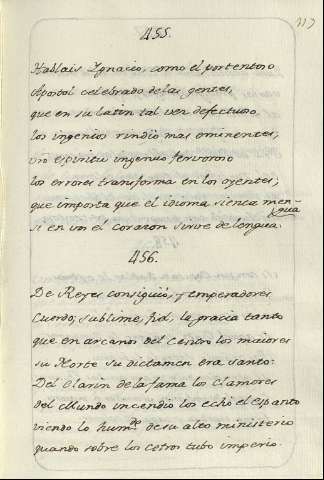 117
455.
Hablais Ignacio, como el portentoso
Apostol celebrado de las gentes,
que en su latin tal vez defectuoso
los ingenios rindio mas eminentes,
vro espiritu ingenuo fervoroso
los errores transforma en los oyentes;
que importa que el idioma sienta mengua
si en vos el corazon sirve de lengua.
456.
De Reyes consiguiò, y emperadores
Cuerdo, sublime, fiel, la gracia tanto
que en arcanos del centro los maiores
su Norte su dictamen era santo:
Del clarin de la fama los clamores
del Mundo incendio los echò el espanto
viendo lo humde de su alto ministerio
quando sobre los cetros tubo imperio.